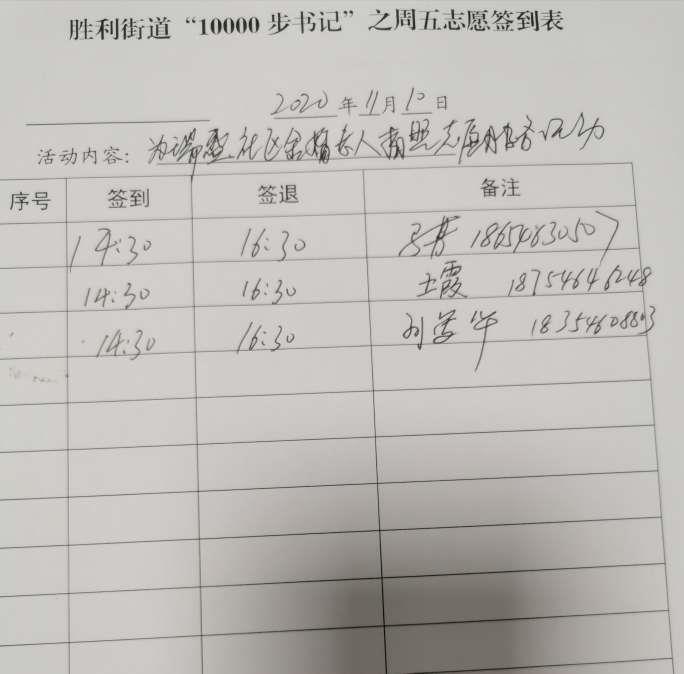 胜利街道“10000步书记”之周五志愿签到表
2020年11月10日
活动内容：为瑞 社区 老人 志愿服务活动
序号 签到 签退 备注
14:30 16:30 18654630507
14:30 16:30 王霞 18754646248
14:30 16:30 刘 华 18354608803